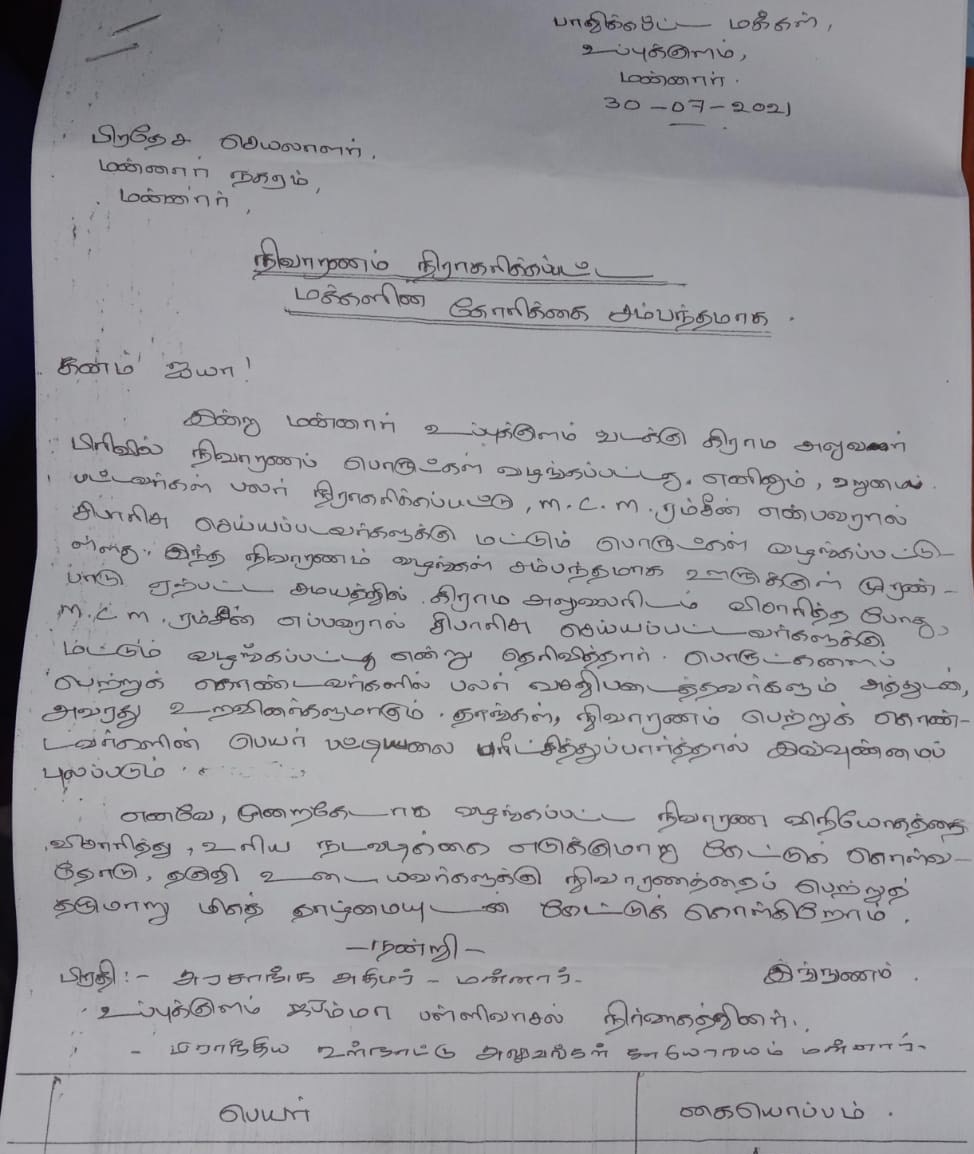 பாதிக்கப்பட்ட மக்கள்,
உப்புக்குளம்,
மன்னார்.
30-07-2021
பிரதேச செயலாளர்,
மன்னார் நகரம்,
மன்னார்,
நிவாரணம் நிராகரிக்கப்பட்ட
மக்களின் கோரிக்கை சம்பந்தமாக.
கனம் ஐயா!
இன்று மன்னார் உப்புக்குளம் வடக்கு கிராம அலுவலர்
பிரிவில் நிவாரணப் பொருட்கள் வழங்கப்பட்டது. எனினும்,
பட்டவர்கள் பலர் நிராகரிக்கப்பட்டு, M.C.M. ரம்சீன் என்பவரால்
சிபாரிசு செய்யப்பட்டவர்களுக்கு மட்டும் பொருட்கள் வழங்கப்பட்டு-
ள்ளது. இந்த நிவாரணம் வழங்கள் சம்பந்தமாக ஊருக்குள் முரண்-
பாடு ஏற்பட்ட சமயத்தில் கிராம அலுவலரிடம் விசாரித்த போது,
M.C.M. ரம்சீன் எப்பவரால் சிபாரிசு செய்யப்பட்டவர்களுக்கு
மட்டும் வழங்கப்பட்டது என்று தெரிவித்தார். பொருட்களைப்
பெற்றுக் கொண்டவர்களில் பலர் வசதிபடைத்தவர்களும் அத்துடன்,
அவரது உறவினர்களுமாகும். தாங்கள், நிவாரணம் பெற்றுக் கொண்-
டவர்களின் பெயர் பட்டியலை பரீட்சித்துப்பார்த்தால் இவ்வுண்மைப்
புலப்படும்.
எனவே, முறைகேடாக வழங்கப்பட்ட நிவாரண விநியோகத்தை
விசாரித்து, உரிய நடவடிக்கை எடுக்குமாறு கேட்டுக் கொள்வ-
தோடு, தகுதி உடையவர்களுக்கு நிவாரணத்தைப் பெற்றுத்
தருமாறு மிகத் தாழ்மையுடன் கேட்டுக் கொள்கிறோம்.
-நன்றி-
பிரதி:- அரசாங்க அதிபர் - மன்னார்.
இங்ஙனம்.
உப்புக்குளம் ஜும்மா பள்ளிவாசல் நிர்வாகத்தினர்.
- பிராந்திய உள்நாட்டு அலுவல்கள் காரியாலயம் மன்னார்.
பெயர்
கையொப்பம்.